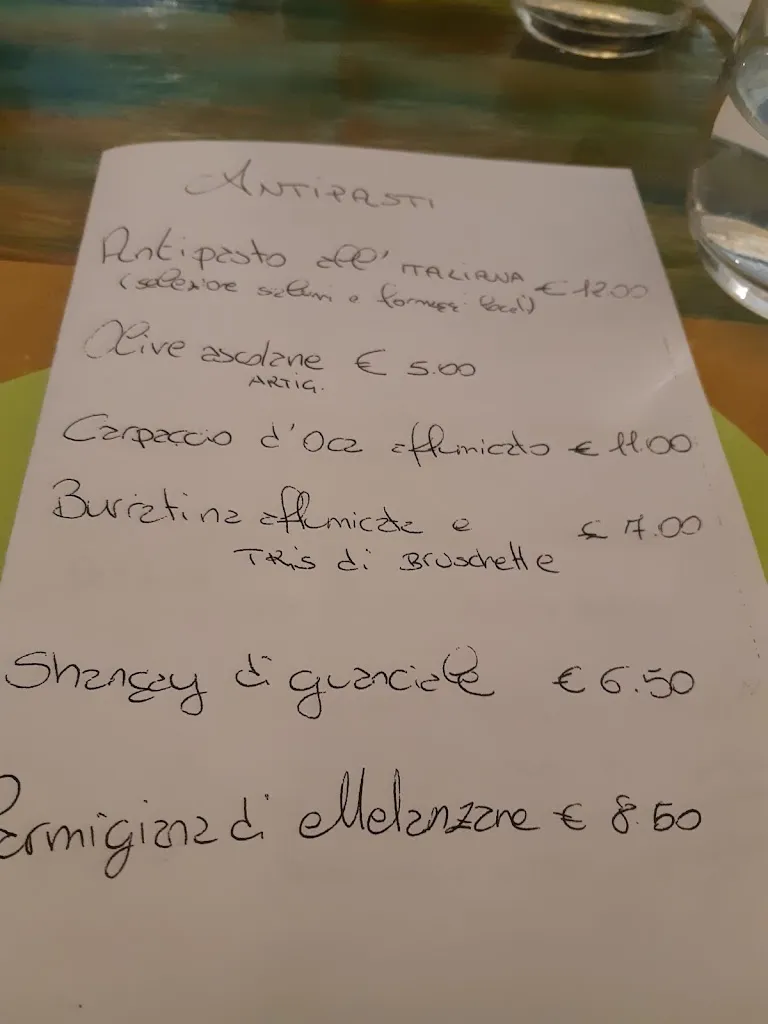 ANTIPASTI
Antipasto all' ITALIANA € 12.00
(selezione salumi e formaggi locali)
Olive ascolane € 5.00
ARTIG.
Carpaccio d'Oca affumicato € 11.00
Burratina affumicata e € 7.00
TRIS di Bruschette
Shangay di guanciale € 6.50
Parmigiana di Melanzane € 8.50